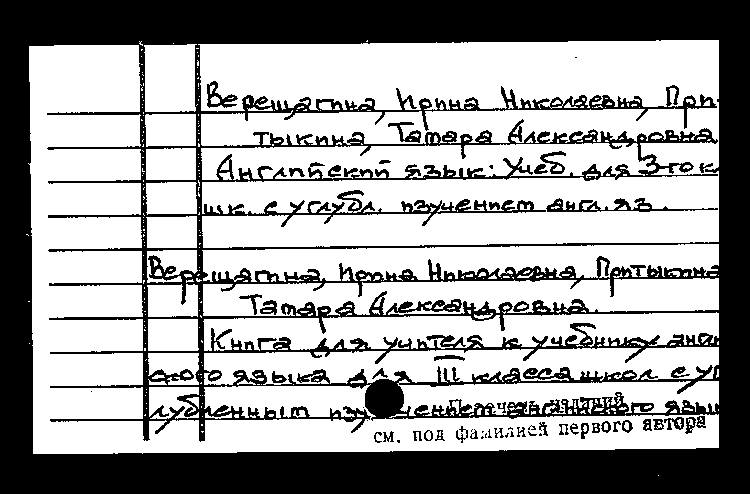 Верещагина, Ирина Николаевна, При-
тыкина, Тамара Александровна
Английский язык: Учеб. для 3-го к
шк. с углубл. изучением англ. яз.
Верещагина, Ирина Николаевна, Притыкина
Тамара Александровна.
Книга для учителя к учебнику англ
ского языка для III класса школ с уг
лубленным изучением английского язы
Перечень изданий
см. под фамилией первого автора